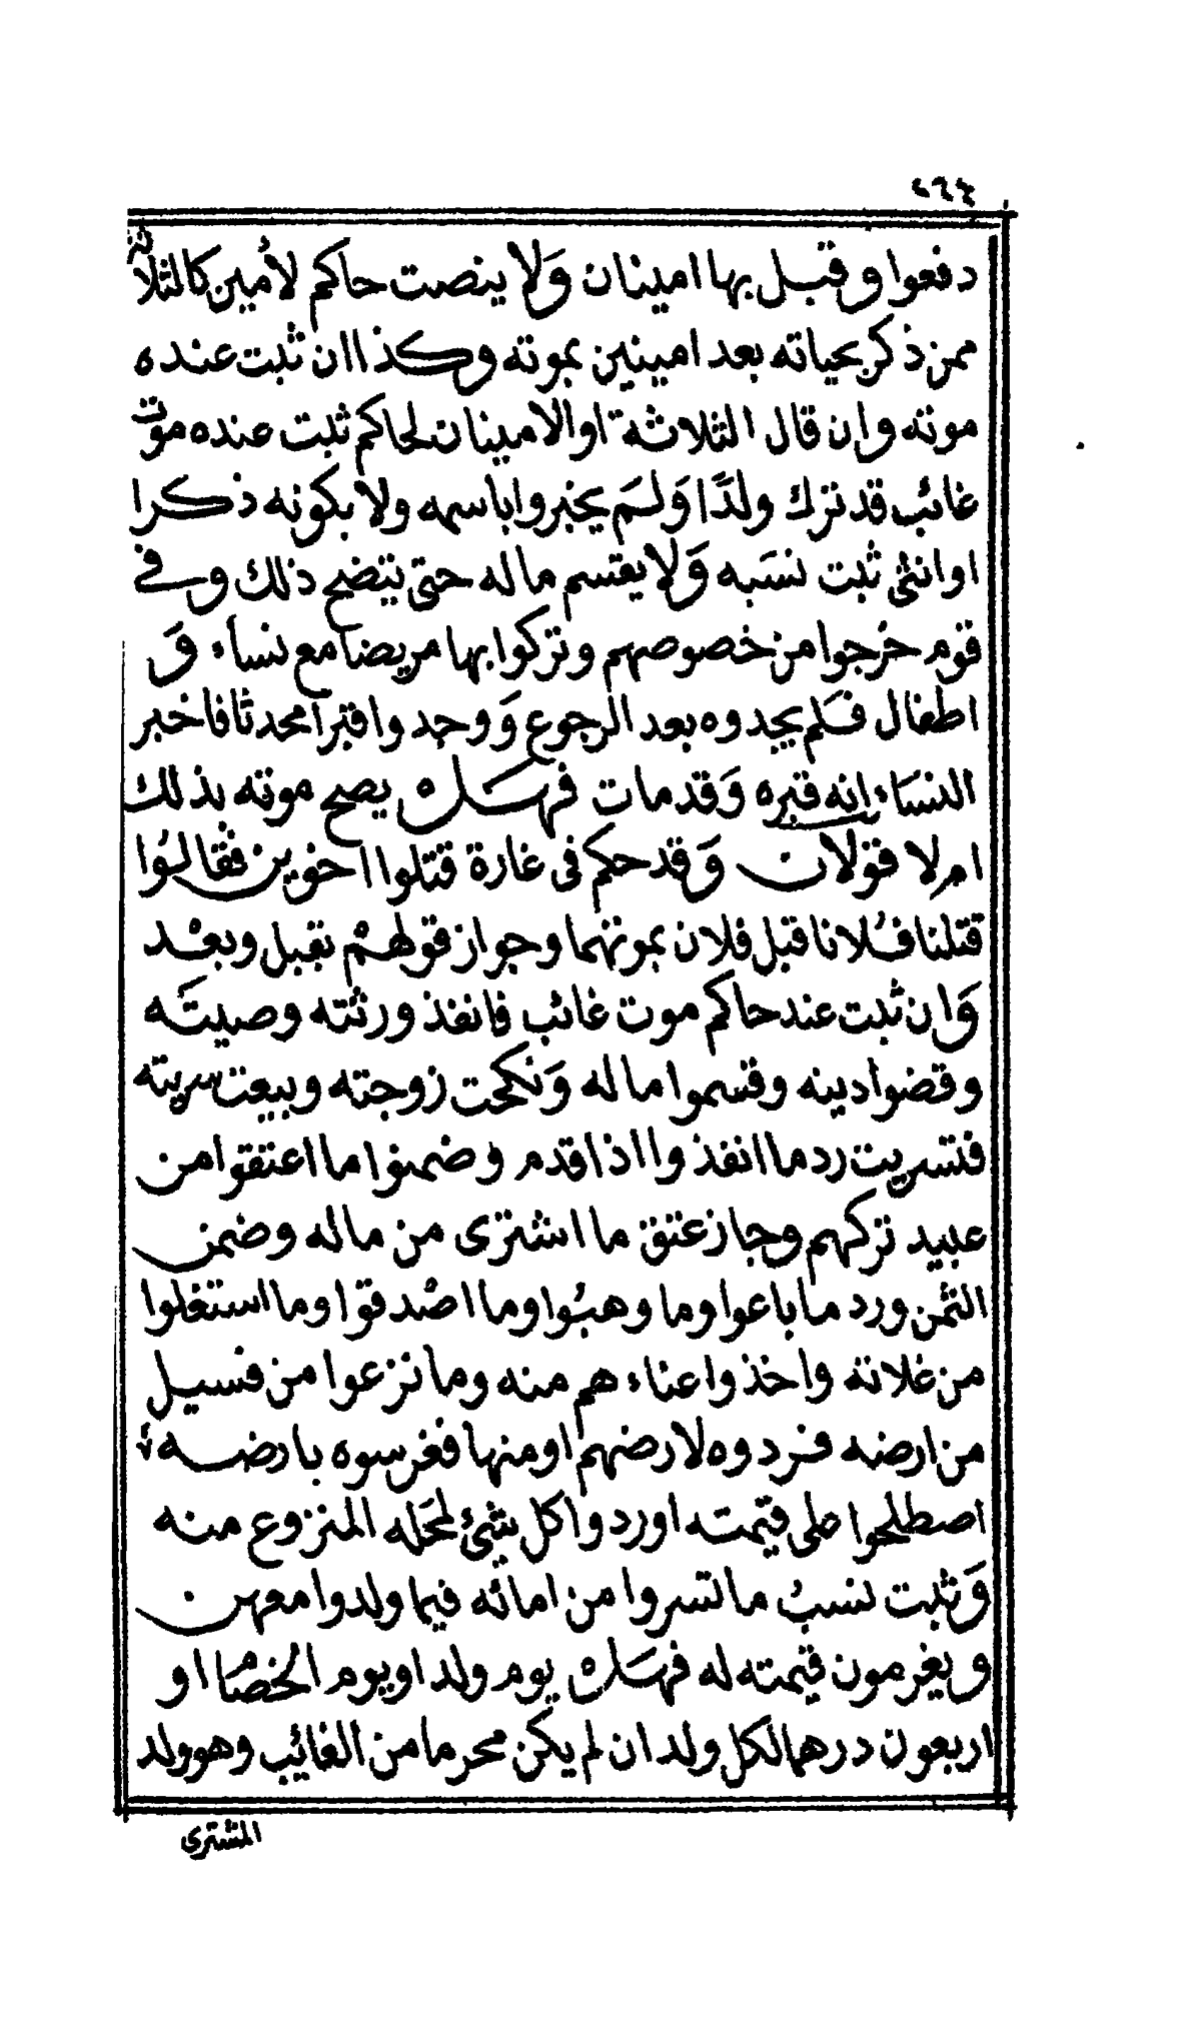 ٢٦٤
دفعوا وقبل بها امينان وَلا ينصت حاكم لأمين كالثلاثة
ممن ذكر بحياته بعد امينين بموته وكذا ان ثبت عنده
موته وان قال الثلاثة او الامينان لحاكم ثبت عنده موت
غائب قد ترك ولدًا وَلم يخبروا باسمه ولا بكونه ذكرا
او انثى ثبت نسَبه وَلا يقتسم ماله حتى يتضح ذلك وفى
قوم خرجوا من خصوصهم وتركوا بها مريضا مع نساء وَ
اطفال فلم يجدوه بعد الرجوع وَوجدوا قبرا محدثا فاخبر
النسَاء انه قبره وَقد مات فهَل يصح موته بذلك
ام لا قولان وَقد حكم فى غارة قتلوا اخوين فقالوُا
قتلنا فُلانا قبل فلان بموتهما وجواز قولهمْ بقبل وبعْد
وَان ثبت عند حاكم موت غائب فانفذ ورثته وصيتَه
وقضوا دينه وقسموا ماله وَنكحت زوجته وبيعت سريته
فتسريت رد ما انفذوا اذا قدم وضمنوا ما اعتقوا من
عبيد تركهم وجاز عتق ما اشترى من ماله وضمن
الثمن ورد ما باعوا وما وهبُوا وما اصْدقوا وما استغلوا
من غلاته واخذوا عناءهم منه وما نزعوا من فسيل
من ارضه فردوه لارضهم او منها فغرسوه بارضه
اصطلحوا على قيمته او ردوا كل شئ لمحَله المنزوع منه
وَثبت نسبُ ما تسروا من امائه فيما ولدوا معهن
ويغرمون قيمته له فهَل يوم ولد او يوم الخصام او
اربعون درهما لكل ولد ان لم يكن محرما من الغائب وهو ولد
المشترى